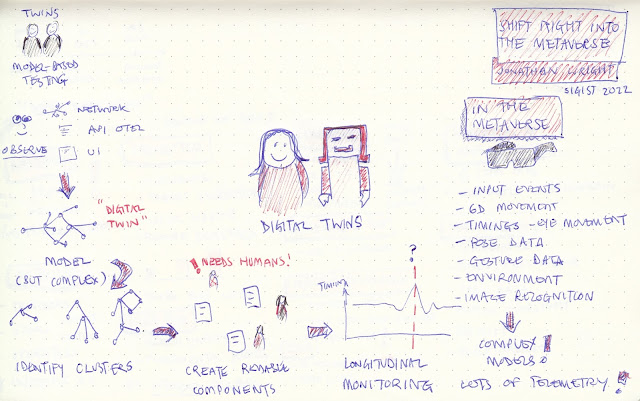 TWINS
MODEL-BASED
TESTING
NETWORK
API OTEL
OBSERVE
UI
"DIGITAL
TWIN"
MODEL
(BUT COMPLEX)
IDENTIFY CLUSTERS
! NEEDS HUMANS!
CREATE READABLE
COMPONENTS
DIGITAL TWINS
?
TIMING
LONGITUDINAL
MONITORING
SHIFT RIGHT INTO
THE METAVERSE
JONATHAN WRIGHT
SIGIST 2022
IN THE
METAVERSE
- INPUT EVENTS
- 6D MOVEMENT
- TIMINGS - EYE MOVEMENT
- POSE DATA
- GESTURE DATA
- ENVIRONMENT
- IMAGE RECOGNITION
COMPLEX
MODELS !
LOTS OF TELEMETRY !